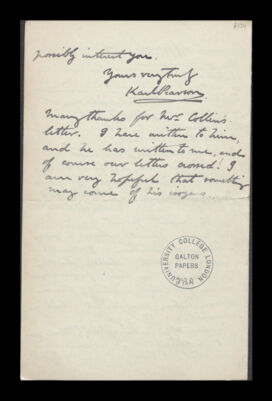 possibly interest you.
Yours very truly
Karl Pearson.
Many thanks for Mrs. Collins'
letter. I have written to him,
and he has written to me, and
of course our letters crossed! I
am very hopeful that something
may come of his
UNIVERSITY COLLEGE LONDON
GALTON
PAPERS